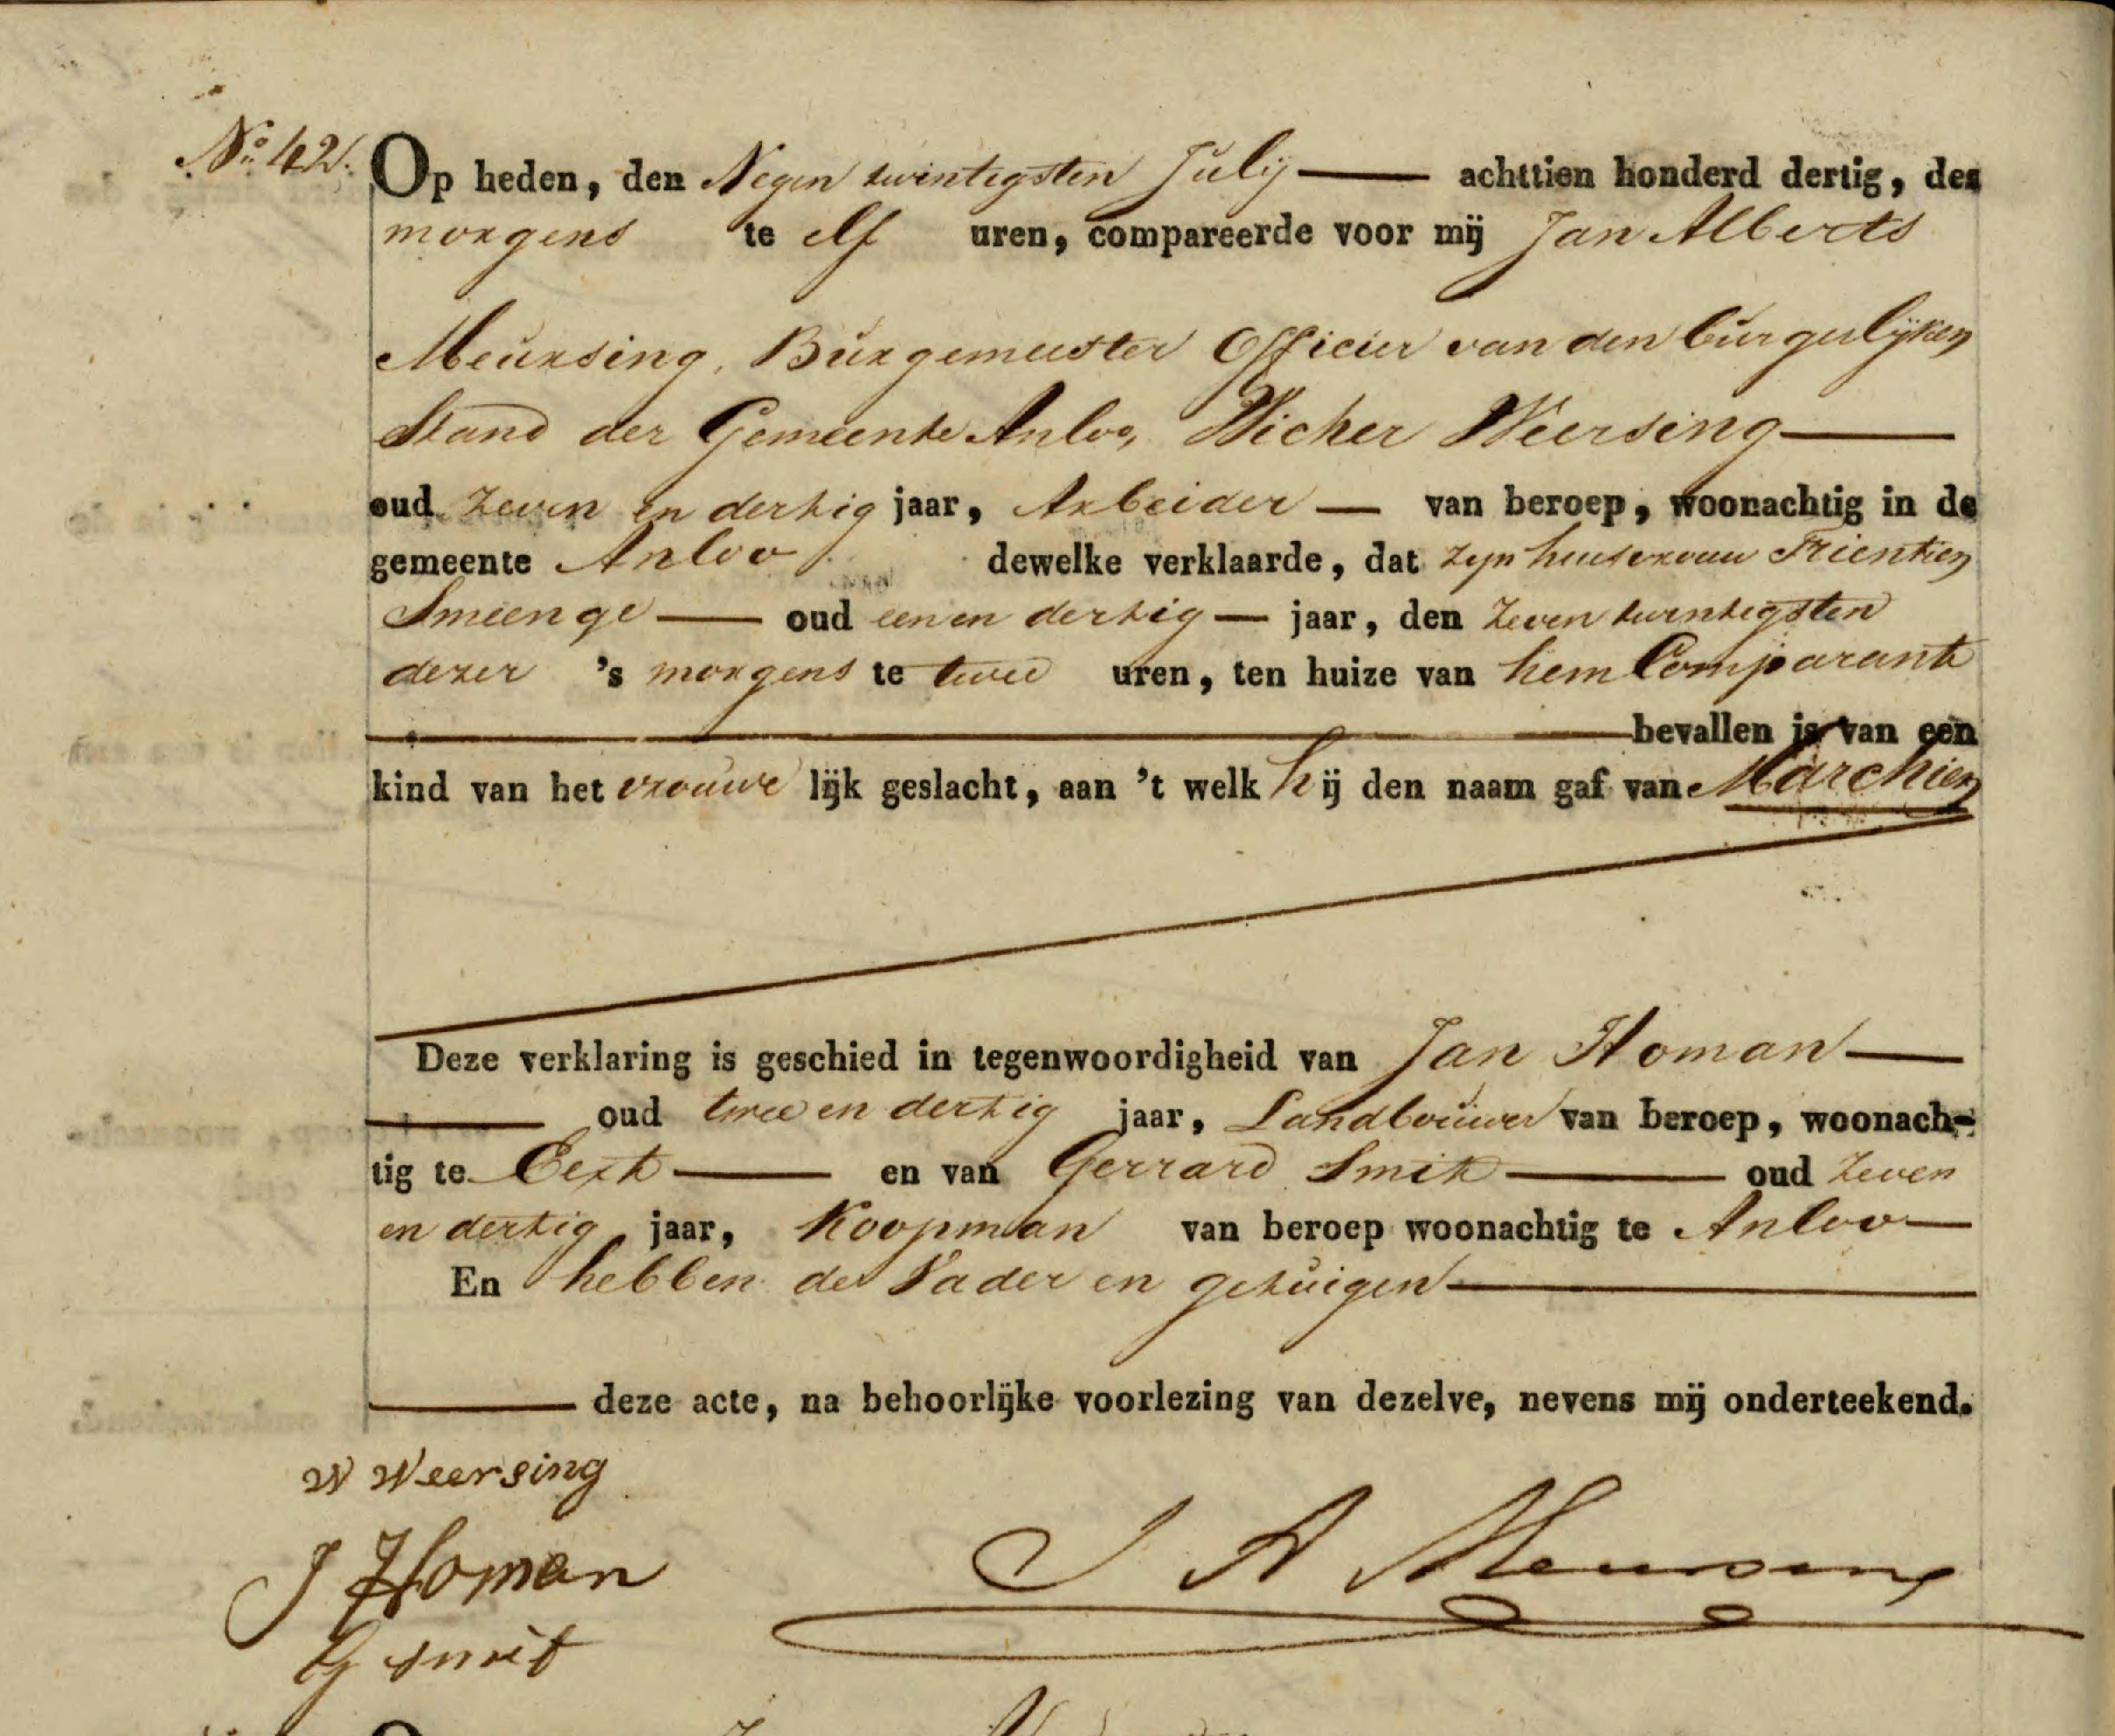 No 42.
Op heden, den Negen twintigsten Julij achttien honderd dertig, des
morgens te elf uren, compareerde voor mij Jan Alberts
Meursing, Burgemeester Officier van den burgerlijken
Stand der Gemeente Anloo, Wicher Weersing
oud zeven en dertig jaar, Arbeider van beroep, woonachtig in de
gemeente Anloo dewelke verklaarde, dat zyn huisvrouw Trientien
Smeenge oud een en dertig jaar, den zeven twintigsten
dezer 's morgens te twee uren, ten huize van hem Comparant
bevallen is van een
kind van het vrouwe lijk geslacht, aan 't welk hij den naam gaf van Marchien
Deze verklaring is geschied in tegenwoordigheid van Jan Homan
oud twee en dertig jaar, Landbouwer van beroep, woonach-
tig te Eext en van Gerrard Smit oud zeven
en dertig jaar, Koopman van beroep woonachtig te Anloo
En hebben de Vader en getuigen
deze acte, na behoorlijke voorlezing van dezelve, nevens mij onderteekend.
W Weersing
J Homan
J A Meursing
G Smit